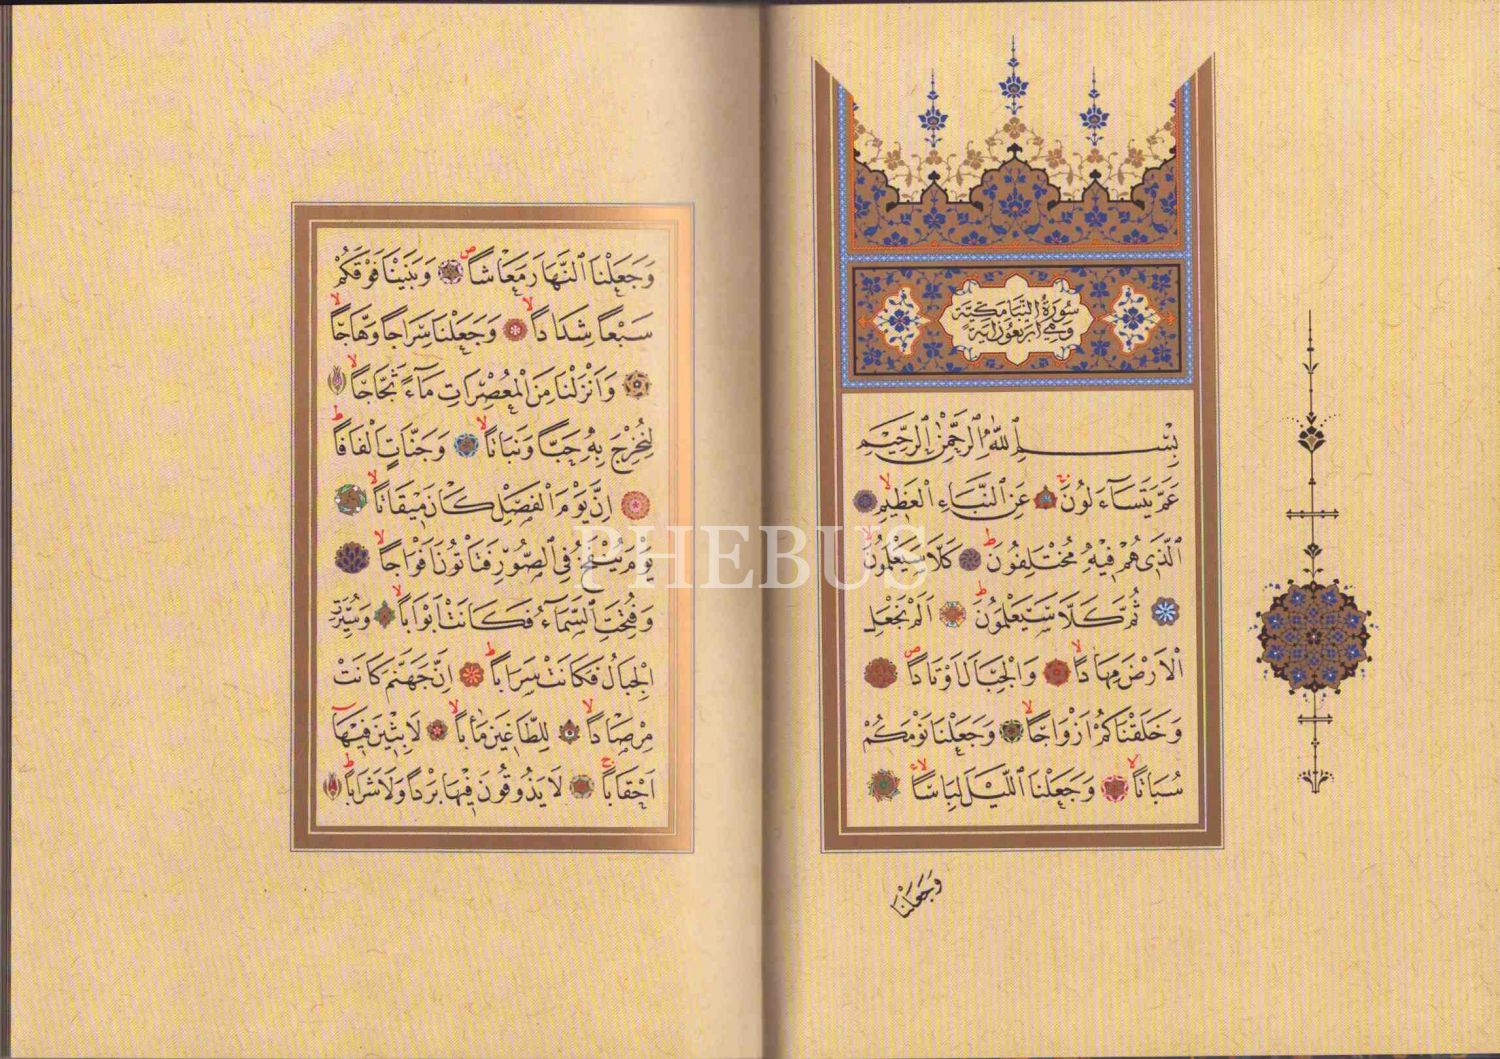 سُورَةُ النَّبَأِ مَكِّيَّةٌ
وَهِيَ اَرْبَعُونَ اٰيَةً
بِسْمِ اللّٰهِ الرَّحْمٰنِ الرَّحِيمِ
عَمَّ يَتَسَٓاءَلُونَۚ عَنِ النَّبَاِ الْعَظٖيمِۙ
اَلَّذٖي هُمْ فٖيهِ مُخْتَلِفُونَؕ كَلَّا سَيَعْلَمُونَۙ
ثُمَّ كَلَّا سَيَعْلَمُونَؕ اَلَمْ نَجْعَلِ
الْاَرْضَ مِهَادًاۙ وَالْجِبَالَ اَوْتَادًاۖ
وَخَلَقْنَاكُمْ اَزْوَاجًاۙ وَجَعَلْنَا نَوْمَكُمْ
سُبَاتًاۙ وَجَعَلْنَا الَّيْلَ لِبَاسًاۙ
وَجَعَلْنَا
وَجَعَلْنَا النَّهَارَ مَعَاشًاۖ وَبَنَيْنَا فَوْقَكُمْ
سَبْعًا شِدَادًاۙ وَجَعَلْنَا سِرَاجًا وَهَّاجًاۙ
وَاَنْزَلْنَا مِنَ الْمُعْصِرَاتِ مَٓاءً ثَجَّاجًاۙ
لِنُخْرِجَ بِهٖ حَبًّا وَنَبَاتًاۙ وَجَنَّاتٍ اَلْفَافًاؕ
اِنَّ يَوْمَ الْفَصْلِ كَانَ مٖيقَاتًاۙ
يَوْمَ يُنْفَخُ فِي الصُّورِ فَتَأْتُونَ اَفْوَاجًاۙ
وَفُتِحَتِ السَّمَٓاءُ فَكَانَتْ اَبْوَابًاۙ وَسُيِّرَتِ
الْجِبَالُ فَكَانَتْ سَرَابًاؕ اِنَّ جَهَنَّمَ كَانَتْ
مِرْصَادًاۙ لِلطَّاغٖينَ مَاٰبًاۙ لَابِثٖينَ فٖيهَٓا
اَحْقَابًاۚ لَا يَذُوقُونَ فٖيهَا بَرْدًا وَلَا شَرَابًاۙ
PHEBUS